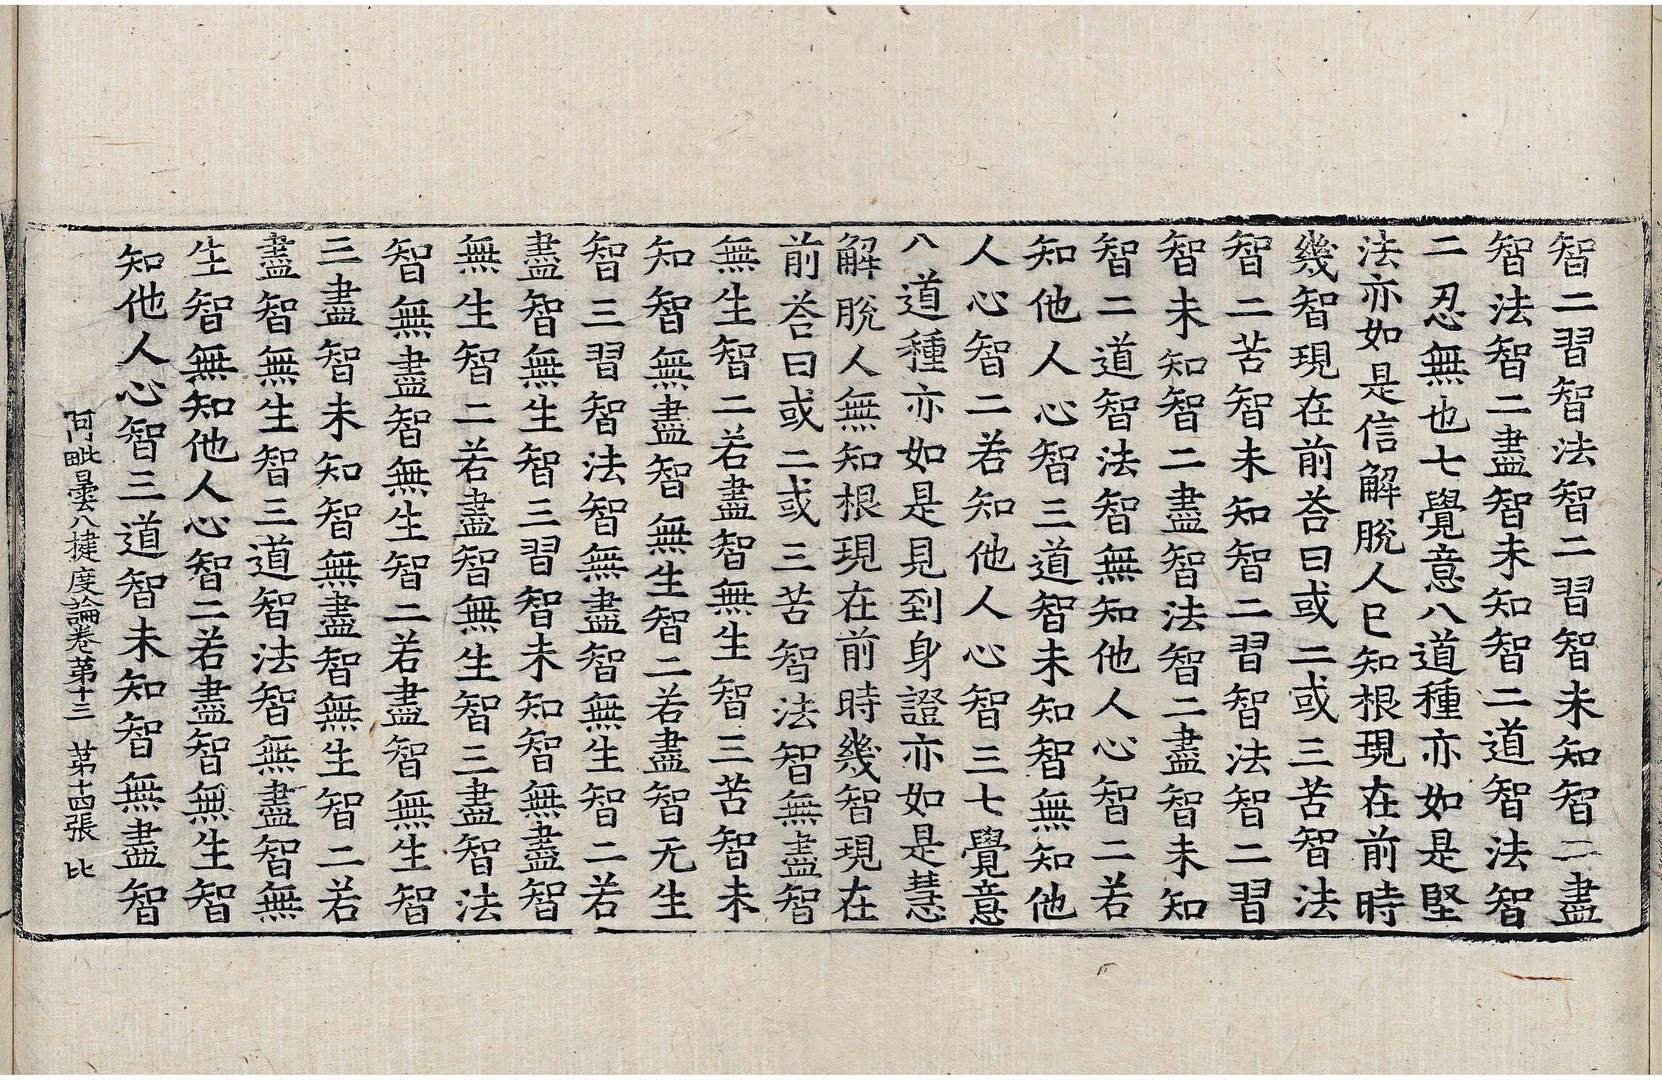 智二習智法智二習智未知智二盡
智法智二盡智未知智二道智法智
二忍無也七覺意八道種亦如是堅
法亦如是信解脫人已知根現在前時
幾智現在前荅曰或二或三苦智法
智二苦智未知智二習智法智二習
智未知智二盡智法智二盡智未知
智二道智法智無知他人心智二若
知他人心智三道智未知智無知他
人心智二若知他人心智三七覺意
八道種亦如是見到身證亦如是慧
解脫人無知根現在前時幾智現在
前荅曰或二或三苦智法智無盡智
無生智二若盡智無生智三苦智未
知智無盡智無生智二若盡智无生
智三習智法智無盡智無生智二若
盡智無生智三習智未知智無盡智
無生智二若盡智無生智三盡智法
智無盡智無生智二若盡智無生智
三盡智未知智無盡智無生智二若
盡智無生智三道智法智無盡智無
生智無知他人心智二若盡智無生智
知他人心智三道智未知智無盡智
阿毗曇八揵度論卷苐十三 苐十四張 比